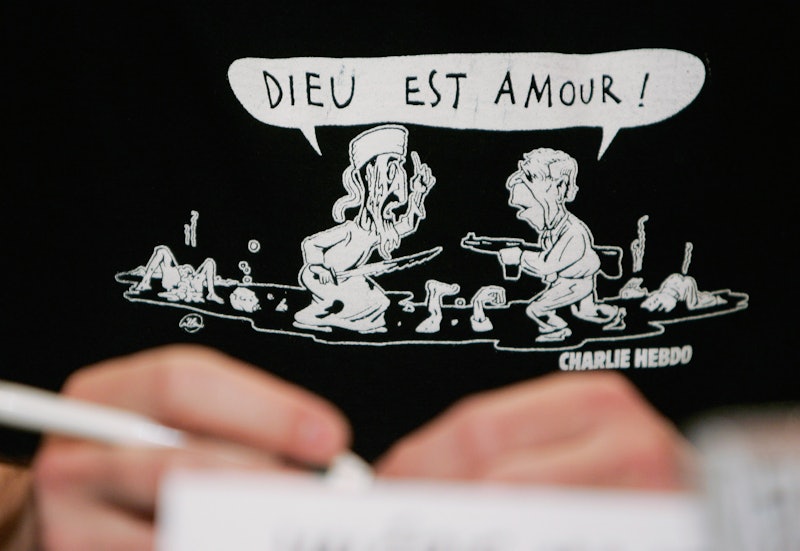 DIEU EST AMOUR !
CHARLIE HEBDO